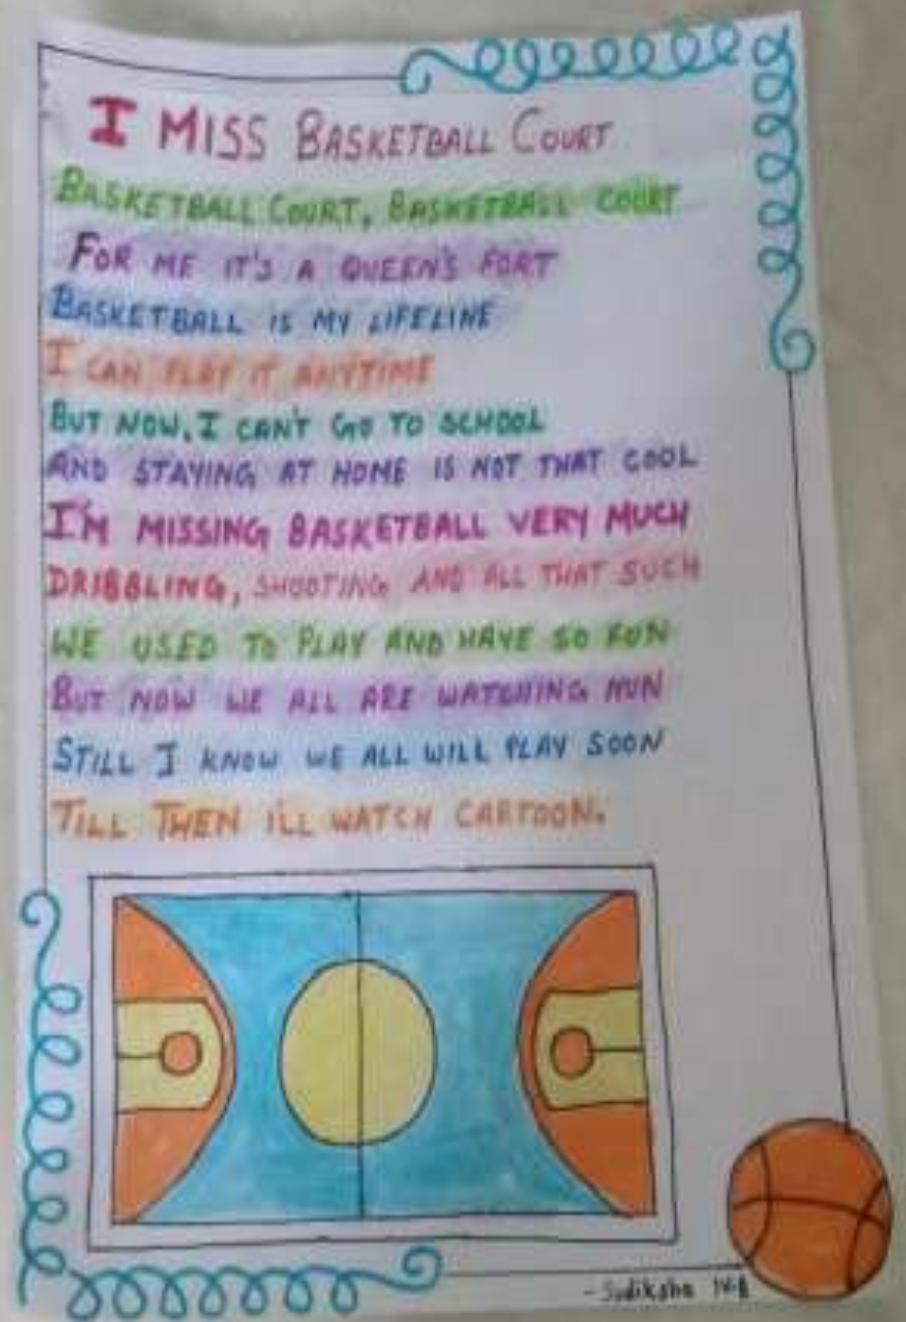 I MISS BASKETBALL COURT
BASKETBALL COURT, BASKETBALL COURT
FOR ME IT'S A QUEEN'S FORT
BASKETBALL IS MY LIFELINE
I CAN PLAY IT ANYTIME
BUT NOW, I CAN'T GO TO SCHOOL
AND STAYING AT HOME IS NOT THAT COOL
I'M MISSING BASKETBALL VERY MUCH
DRIBBLING, SHOOTING AND ALL THAT SUCH
WE USED TO PLAY AND HAVE SO FUN
BUT NOW WE ALL ARE WATCHING NUN
STILL I KNOW WE ALL WILL PLAY SOON
TILL THEN I'LL WATCH CARTOON.
- Sudiksha